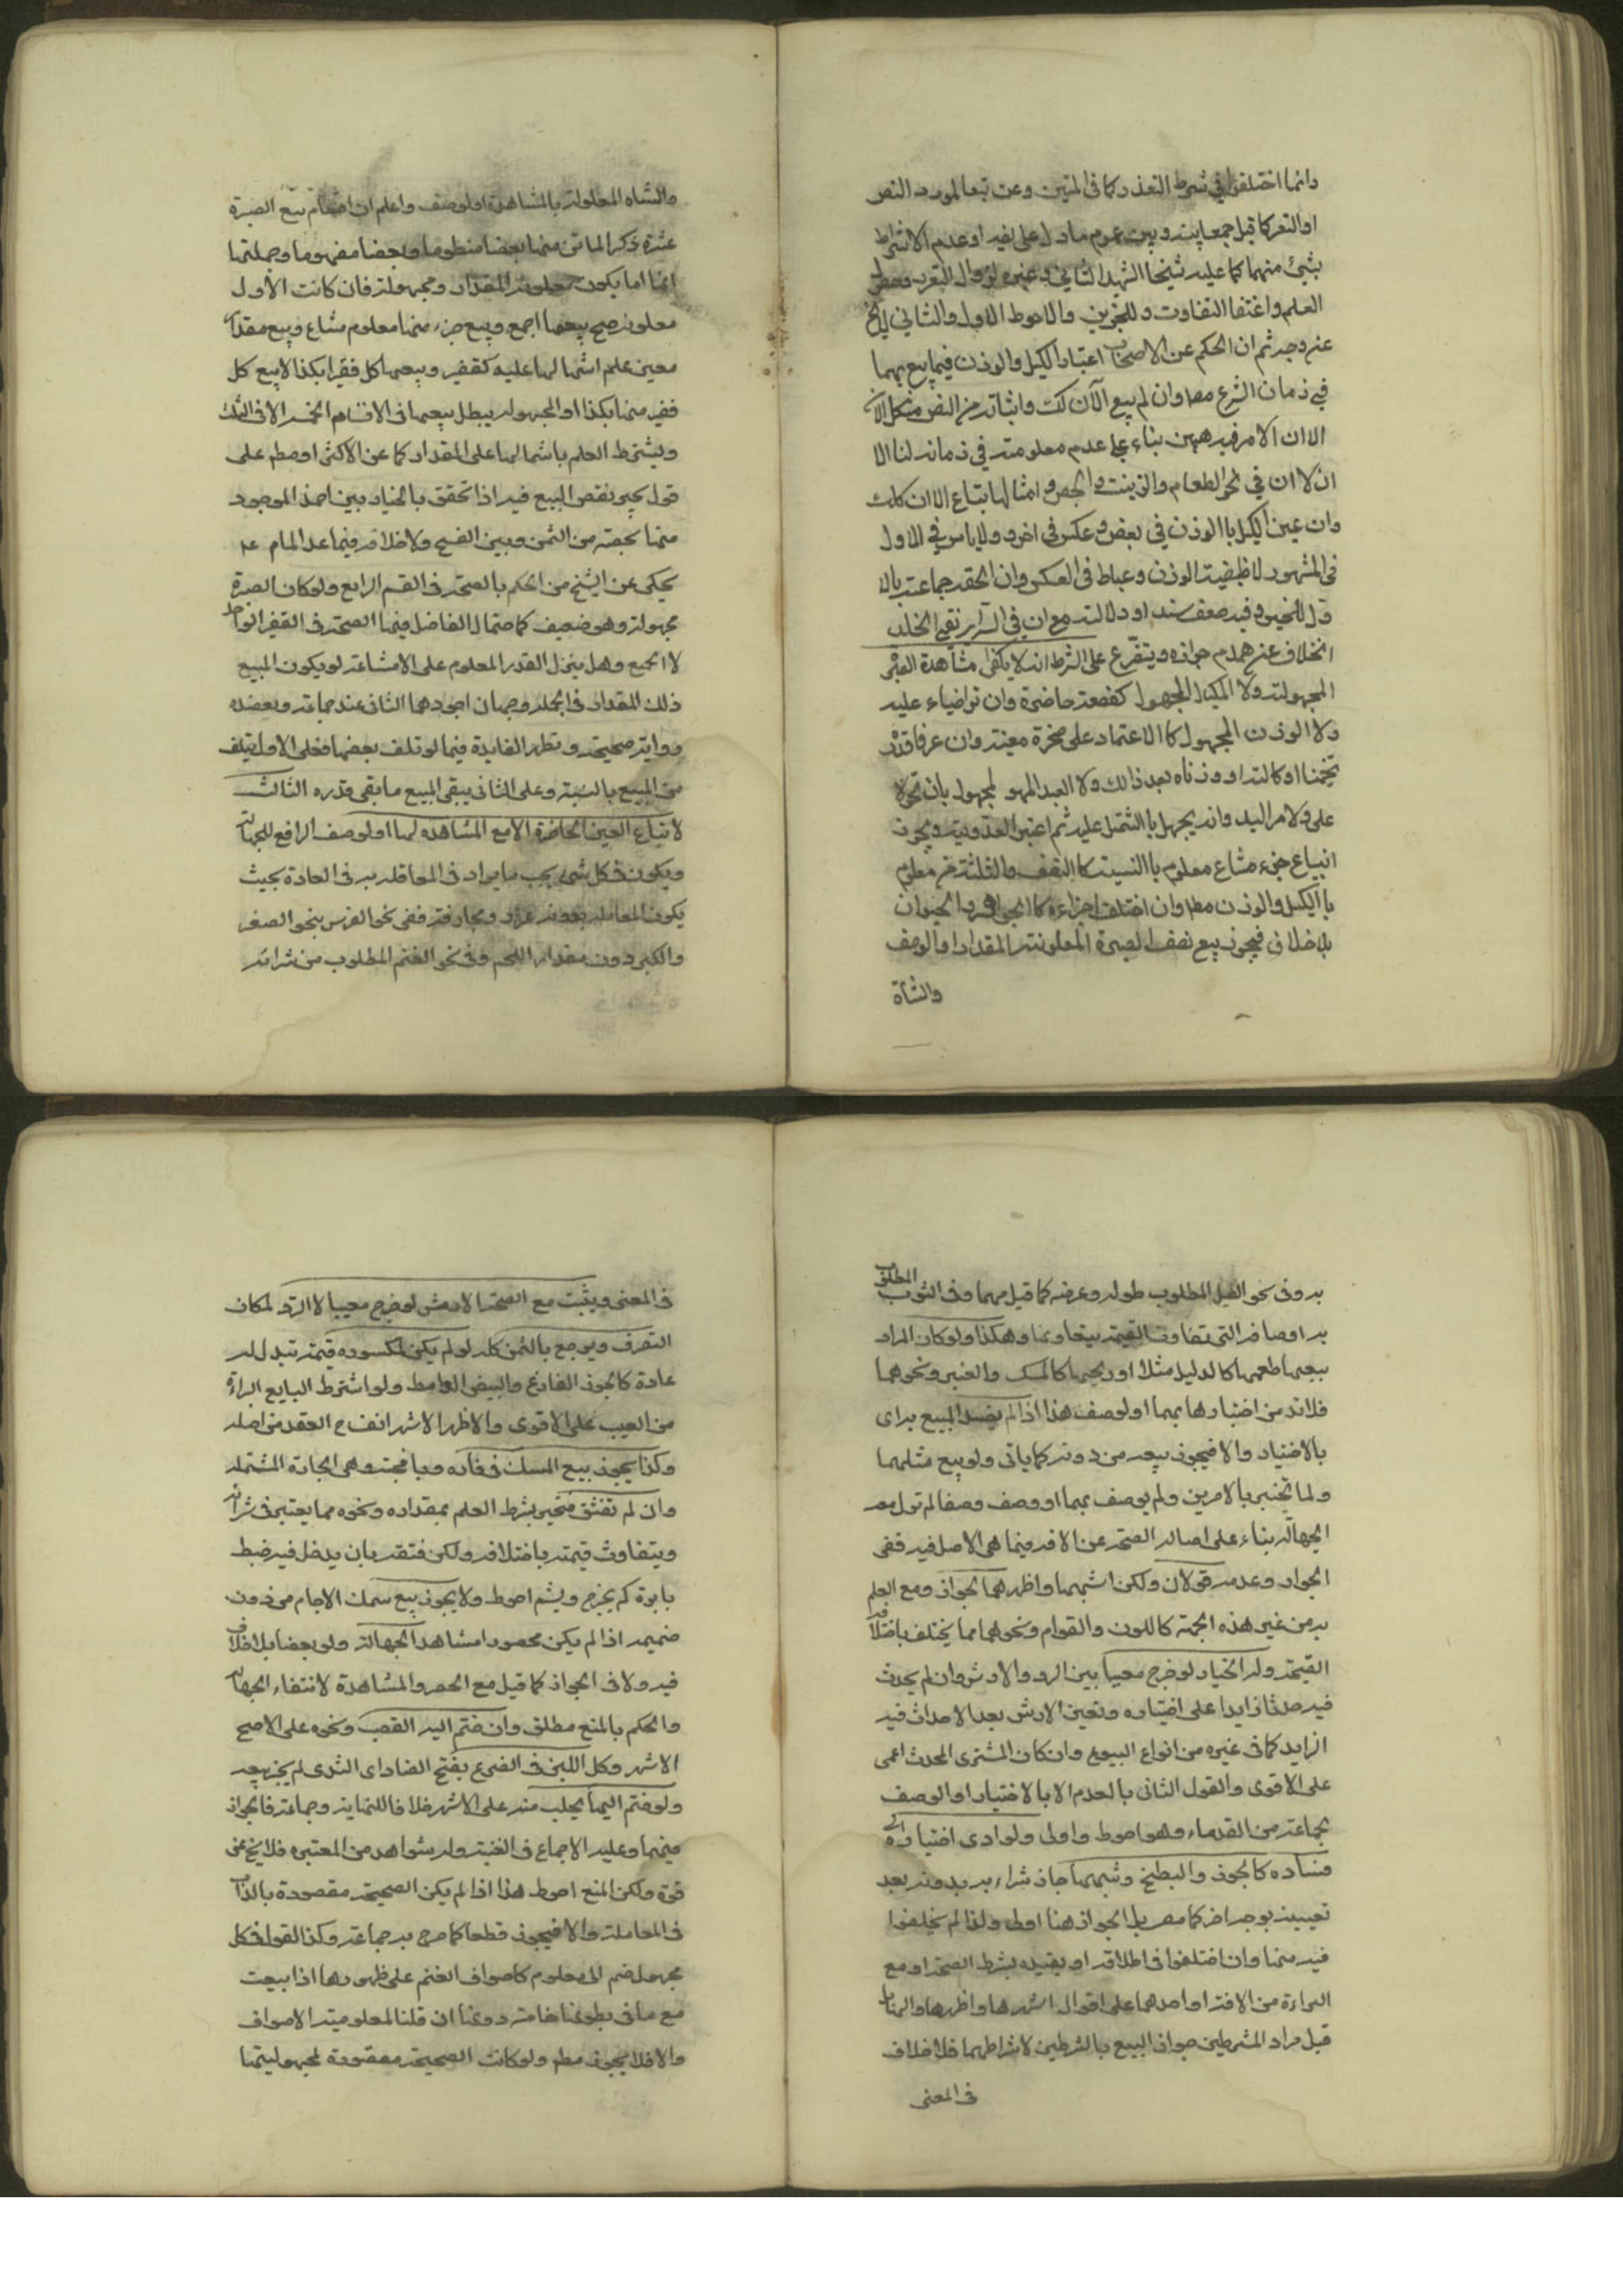 وانما اختلفوا في شرط التعذر كما في المتين وعن تبعا لمورد النص
او التعركا قيل جمعا بينه وبين عموم ما دل على نفيه او عدم الاشتراط
بشئ منهما كما عليه شيخنا الشهيد الثاني وغيره لزوال الغرر وحصول
العلم واغتفار التفاوت وللخبرين والاحوط الاول والثاني لا يخ
عن وجه ثم ان الحكم عن الاصحاب اعتبار الكيل والوزن فيما بيع بهما
في زمان الشرع مط وان لم يبع الآن كك واثباته من النص مشكل الآن
الا ان الامر فيه هين بناء على عدم معلوميته في زمانه لنا الا
ان لا ان في نحو الطعام والزيت والجص وامثالها يبتاع الا ان كك
وان عين الكيل با الوزن في بعض وعكس في اخر ولا باس في الاول
في المشهور لاضبطية الوزن وعياط في العكس وان الحقه جماعة بالا
ول للخبر وفيه ضعف سند او دلالة مع ان في السرائر نفي الخلاف
الخلاف عن عدم جوازه ويتفرع على الشرط انه لا يكفى مشاهدة الصبر
المجهولة ولا المكيال المجهول كقصعة حاضرة وان تراضياء عليه
ولا الوزن المجهول كا الاعتماد على صخرة معينة وان عرفا قدر
تخمينا او كالته او وزناه بعد ذالك ولا العدد المجهول بان تحولا
على ولا مرا ليد وانه يجهل با الشتمل عليه ثم اعتبر العددية ويجوز
ابتياع جزء مشاع معلوم با النسبة كا النصف والثلث من معلوم
با الكيل والوزن مط وان اختلف اجزاءه كا الجواهر والحيوان
بلا خلاف فيجوز بيع نصف الصبرة المعلومة المقدار او الوصف
والشاة
والشاه المعلولة بالمشاهدة او لوصف واعلم ان اقسام بيع الصبرة
عشرة ذكر الماتن منها بعضا منطوما وبعضا مفهوما وجملتها
انها اما يكون معلومة المقدار ومجهولة فان كانت الاول
معلومة صح بيعها اجمع وبيع جزء منها معلوم مشاع وبيع مقدار
معين علم اشتمالها عليه كقفيز وبيعها كل قفيز بكذا لا بيع كل
قفيز منها بكذا او المجهولة يبطل بيعها فى الاقسام الخمسه الا فى الثالث
ويشترط العلم باشتمالها على المقدار كما عن الاكثر او مطم على
قول يجبر نقص المبيع فيه اذا تحقق بالخيار بين اخذ الموجود
منها بحصته من الثمن وبين الفسخ ولا خلاف فيما عدا المام عد
يحكى عن الشيخ من الحكم بالصحة فى القسم الرابع ولو كان الصبرة
مجهولة وهو ضعيف كما حتمال الفاضل فيها الصحة فى القفيز الواحد
لا الجميع وهل ينزل القدر المعلوم على الاشاعة لو يكون المبيع
ذلك المقدار فى الجملة وجهان اجودهما الثانى عند جماعة وبعضده
ورواية صحيحة وتظهر الفايدة فيما لو تلف بعضها فعلى الاول يتلف
من المبيع بالنسبة وعلى الثانى يبقى المبيع ما بقى قدره الثالث
لا تباع العين الحاضرة الا مع المشاهده لها او لوصف الرافع للجهالة
ويكون فى كل شئ بحسب ما يراد فى المعاقله به فى العادة بحيث
يكون المعامله بدونه غرر ومجازفة ففى نحو الفرس بنحو الصغر
والكبر دون مقدار اللحم وفى نحو الغنم المطلوب من شرائه
به وفى نحو الفيل المطلوب طوله وعرضه كما قيل مهما وفى الثوب المطلوب
به اوصافه التى تتفاوت القيمة بتفاوتها وهكذا ولو كان المراد
بيعها طعمها كالدليل مثلا او ريحها كالمسك والعنبر ونحوهما
فلابد من اختبارها بهما او لوصف هذا اذا لم يفسد المبيع به اى
بالاختبار والا فيجوز بيعه من دونه كما ياتى ولو بيع مثلهما
ولما يختبر بالامرين ولم يوصف بهما او وصف وصفا لم تول معه
الجهاله بناء على اصاله الصحة عن الافه فيما هى الاصل فيه ففى
الجواز وعدمه قولان ولكن اشبههما واظهرهما الجواز ومع العلم
به من غير هذه الجهة كاللون والقوام ونحوهما مما يختلف باختلافه
القيمة وله الخيار لو خرج معيبا بين الرد والارش وان لم يحدث
فيه حدثا زايدا على اختباره وتعين الارش بعد الاحداث فيه
الزايد كما فى غيره من انواع البيوع وان كان المشترى المحدث اعمى
على الاقوى والقول الثانى بالعدم الا بالاختبار او الوصف
لجماعة من القدماء وهو احوط واولى ولو ادى اختباره الى
فساده كالجوز والبطيخ وشبههما جاز شراءه بدونه بعد
تعيينه بوجه اخر كما مر بل الجواز هنا اولى ولذا لم يخلفوا
فيه منها وان اختلفوا فى اطلاقه او بقيده بشرط الصحة او مع
البراءة من الافه او احدهما على اقوال اشهرها واظهرها والمنال
قبل مراد المشرطين جواز البيع بالشرطين لاشراطهما فلا خلاف
فى المعنى
فى المعنى ويثبت مع الصحة الارش لو خرج معيبا لا الرد لمكان
التصرف ويرجع بالثمن كله لو لم يكن لمكسوره قيمة تبدل له
عادة كالجوز الفارغ والبيض الوامط ولو اشترط البايع البراءة
من العيب على الاقوى والاظهر الاشهر انفساخ العقد من اصله
وكذا يجوز بيع المسك فى فاره وبافجته وهى الجلدة المشتمله
وان لم تفتق فتخير بشرط العلم بمقداره ونحوه مما يعتبر فى شرائه
ويتفاوت قيمته باختلافه ولكن فتقه بان يدخل فيه خيط
بابرة ثم يخرج ويشم احوط ولا يجوز بيع سمك الاجام من دون
ضميمه اذا لم يكن محصورا مشاهدا لجهالة ولو بعضا بلا خلاف
فيه ولا فى الجواز كما قيل مع الحصر والمشاهدة لانتفاء الجهالة
والحكم بالمنع مطلق وان ضتم اليه القصب ونحوه على الاصح
الاشهر وكل اللبن فى الضرع بفتح الضاد اى الثدى لم يجز بيعه
ولو ضم اليها يحلب منه على الاشهر خلافا للنهاية وجماعة فالجواز
فيهما وعليه الاجماع فى الغنية وله شواهد من المعتبره فلا يخ عن
قوة ولكن المنع احوط هذا اذا لم يكن الصحيحة مقصودة بالذات
فى المعاملة والا فيجوز قطعا كما صرح به جماعة وكذا القول فى كل
مجهول ضم الى معلوم كاصواف الغنم على ظهورها اذا بيعت
مع ما فى بطونها خامته دونها ان قلنا لمعلومية الاصواف
والا فلا يجوز مطم ولو كانت الصحيحة مقصودة لمجهوليتها